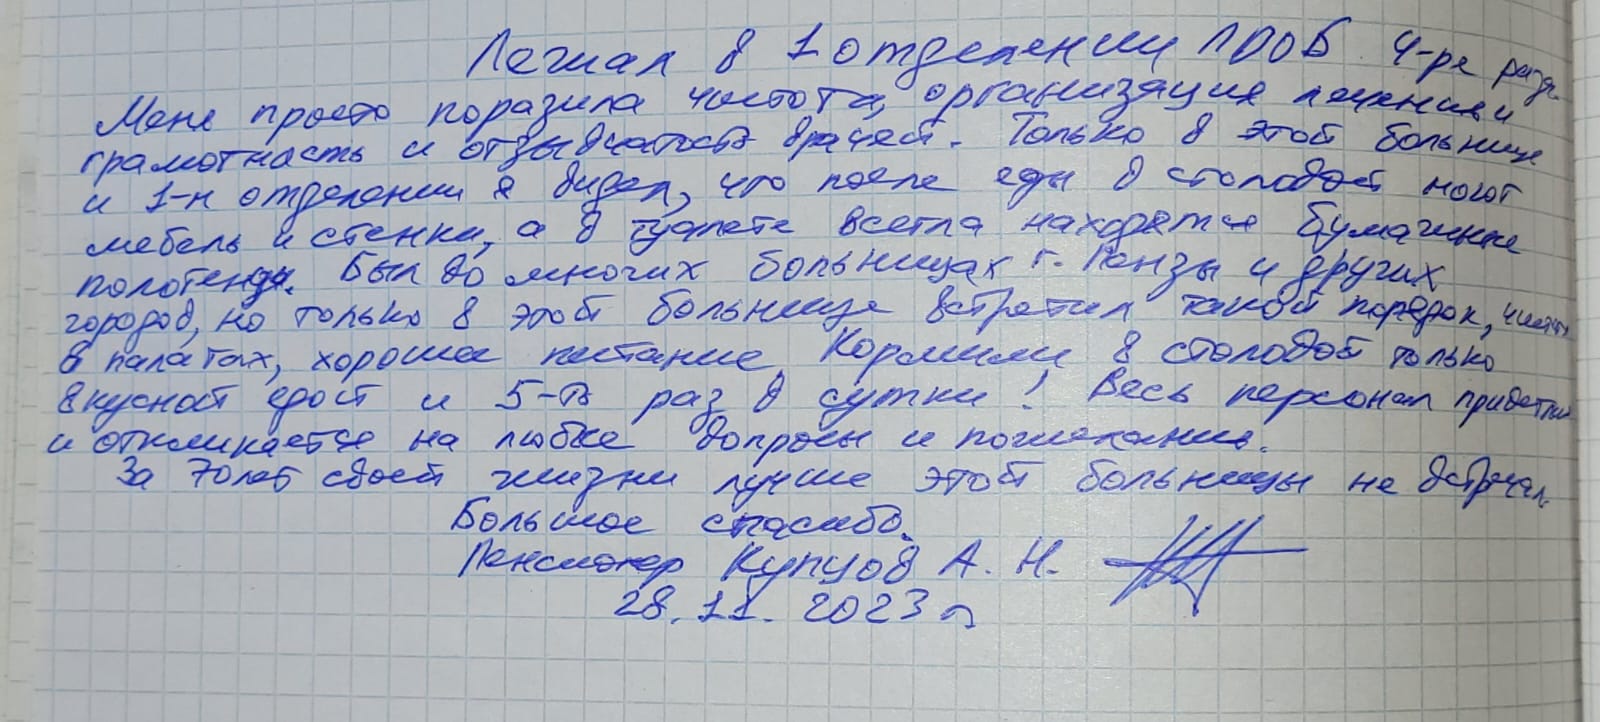 Лежал в 1 отделении ПООБ 4-ре раза.
Меня просто поразила чистота, организация лечения и
грамотность и отзывчатость врачей. Только в этой больнице
и 1-н отделении я видел, что после еды в столовой моют
мебель и стенки, а в туалете всегда находятся бумажные
полотенца. Был во многих больницах г. Пензы и других
городов, но только в этой больнице встретил такой порядок, чистоту
в палатах, хорошее питание. Кормили в столовой только
вкусной едой и 5-ть раз в сутки! Весь персонал приветлив
и откликается на любые вопросы и пожелания.
За 70 лет своей жизни лучше этой больницы не встречал.
Большое спасибо.
Пенсионер Купцов А. Н.
28.11.2023 г.